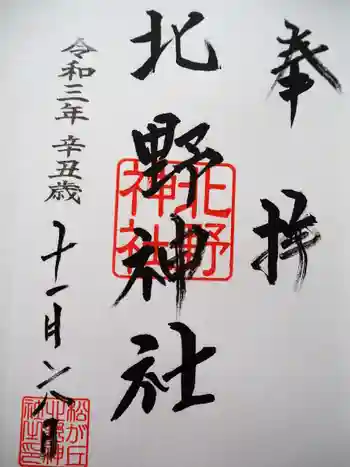 奉拝
北野神社
北野神社
令和三年 辛丑歳
十一月六日
松が丘
北野神
社之印